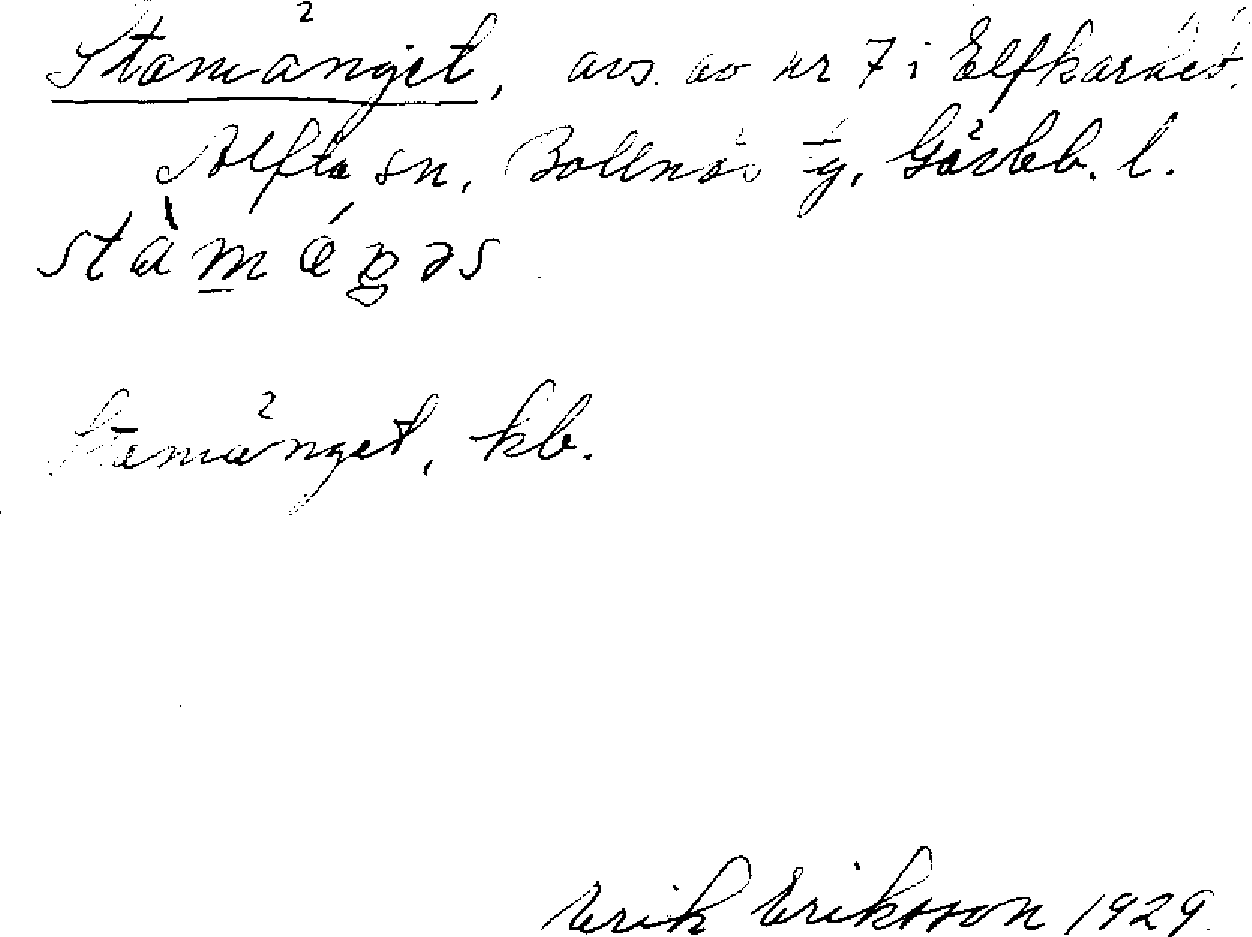 Stamänget, avs. av nr 7 i Elfkarhed.
Alfta sn, Bollnäs tg, Gävleb. l.
stàmǽŋəs
Stamänget, kb.
Erik Eriksson 1929.